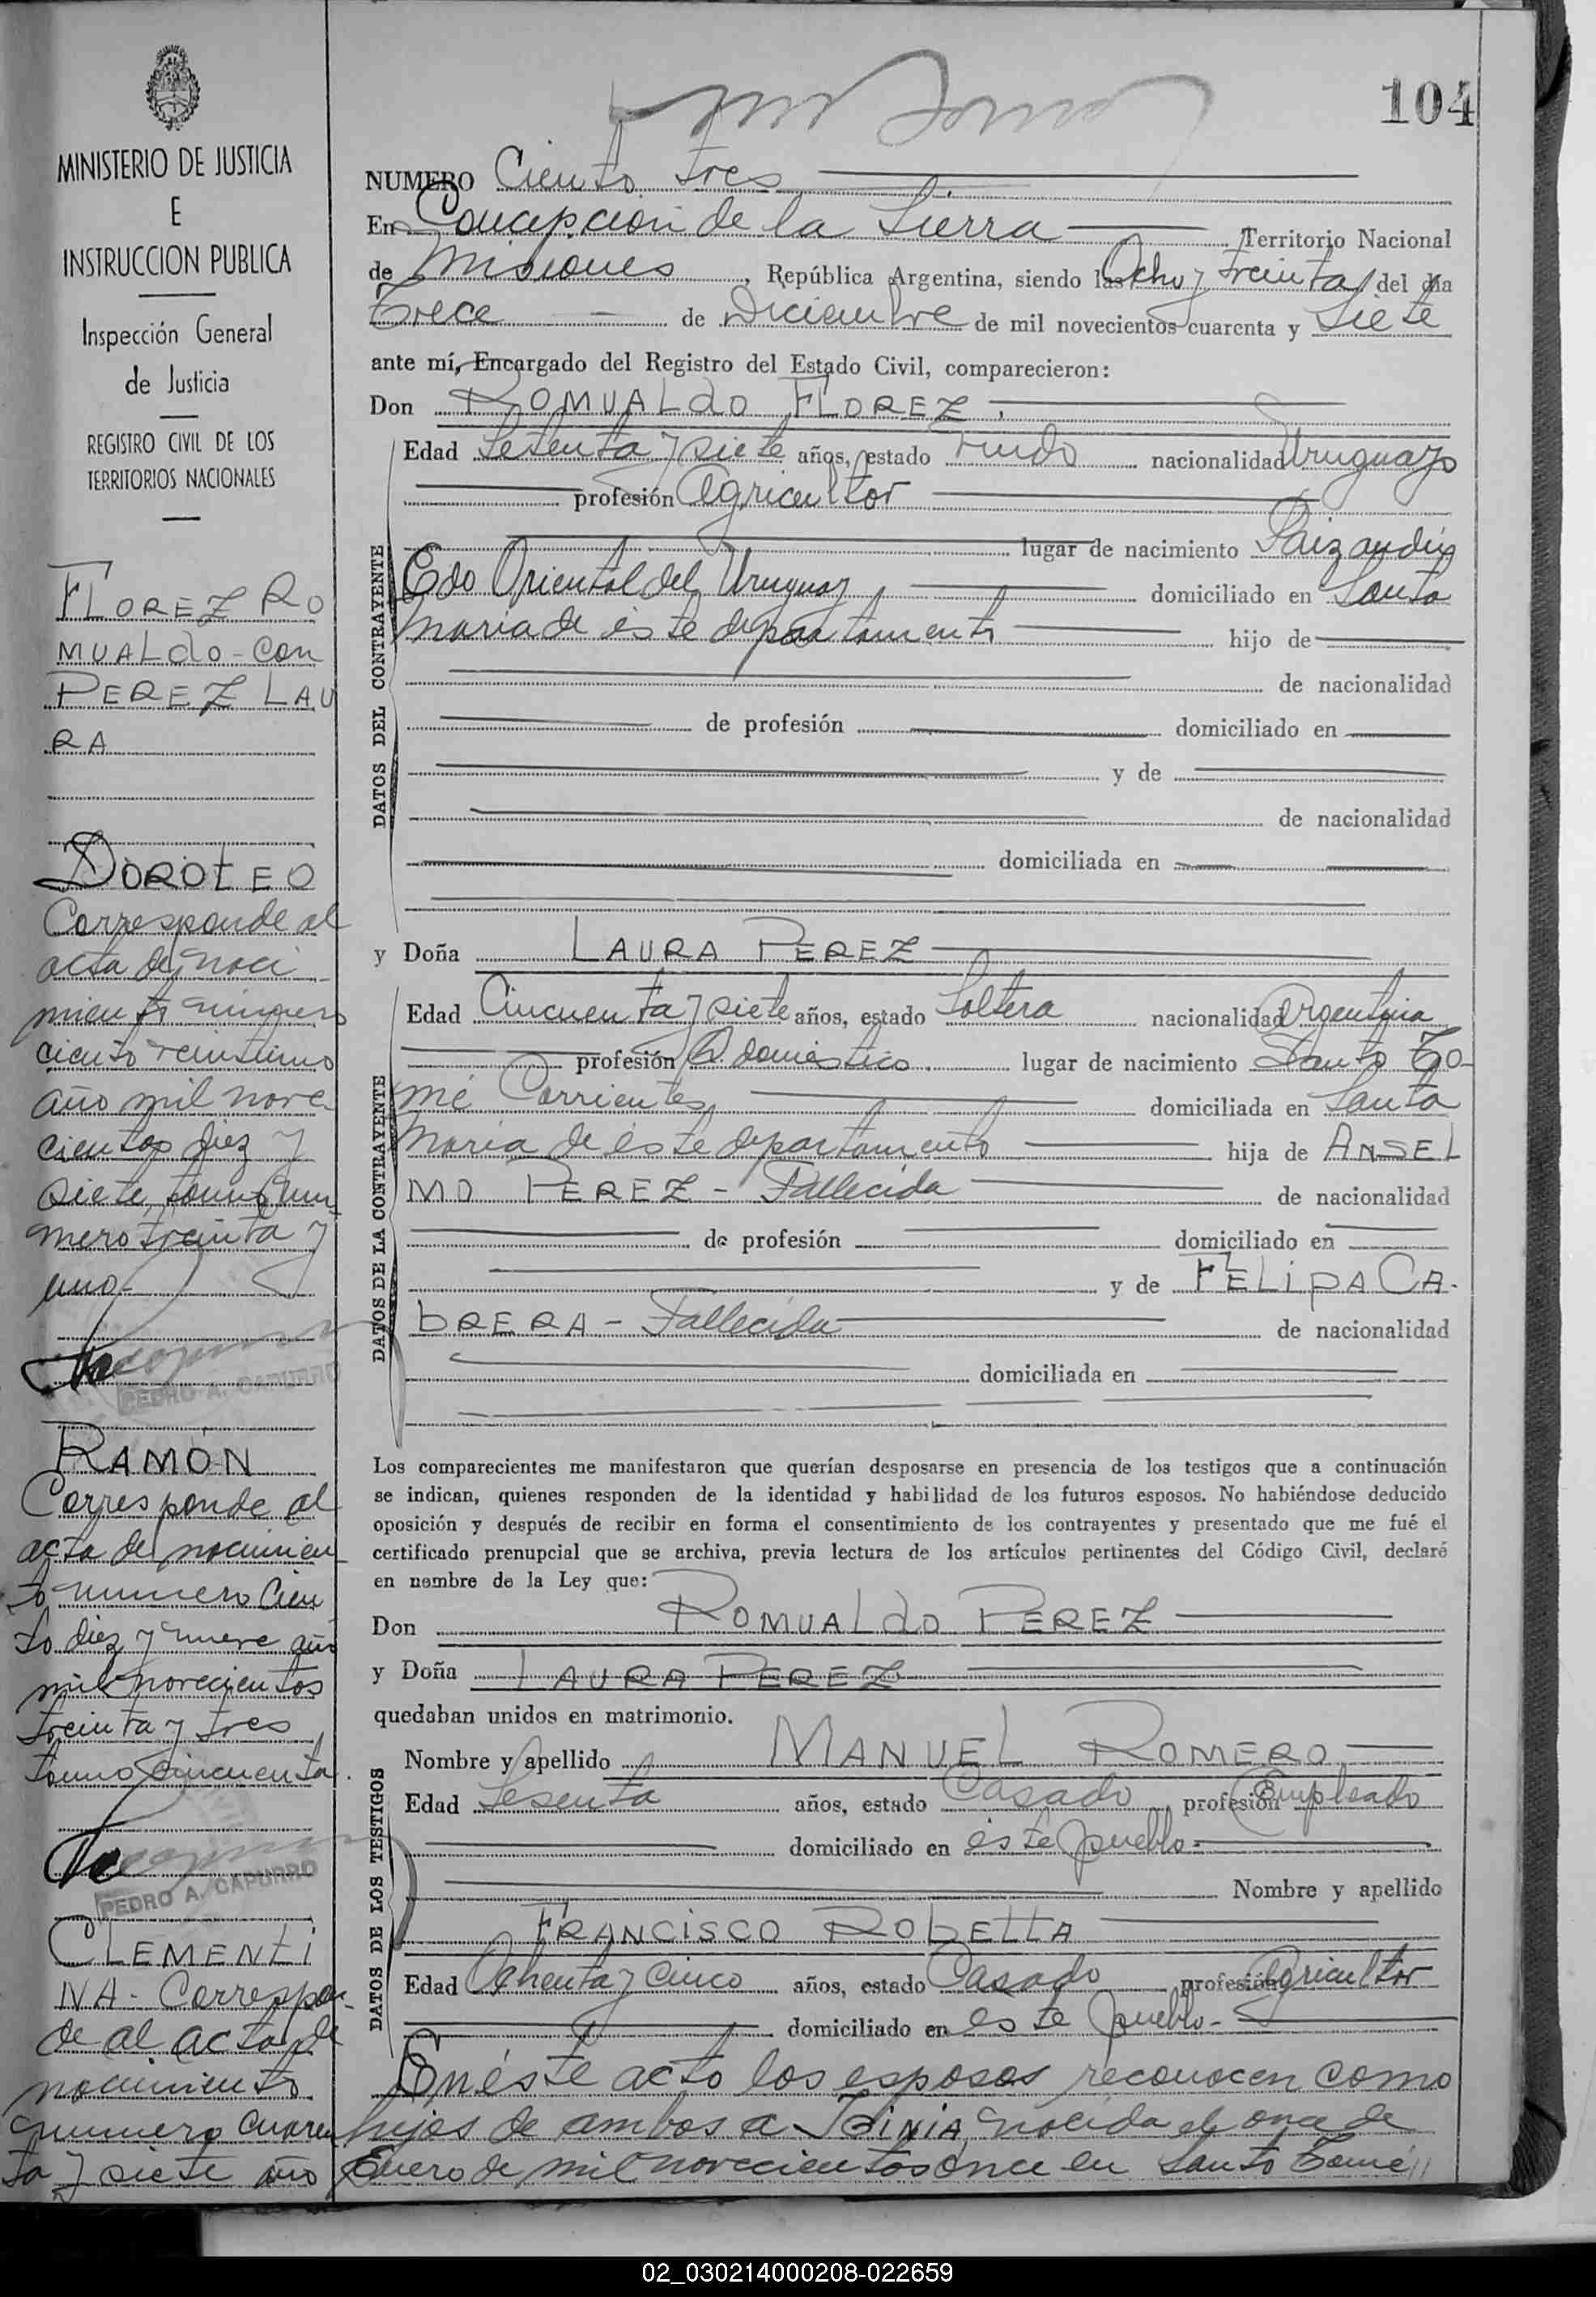 104
MINISTERIO DE JUSTICIA
E
INSTRUCCION PUBLICA
Inspección General
de Justicia
REGISTRO CIVIL DE LOS
TERRITORIOS NACIONALES
FLOREZ RO
MUALdO - Con
PEREZ LAU
RA
DOROtEO
Corresponde al
acta de naci
miento número
ciento veintiuno
año mil nove
cientos diez y
siete, tomo nu
mero treinta y
uno-
PEDRO A. CAPURRO
RAMÓN
Corresponde al
acta de nacimien
to numero Cien
to diez y nueve año
mil novecientos
treinta y tres
tomo cincuenta.
PEDRO A. CAPURRO
CLEMENti
NA - Correspon-
de al acta de
nacimiento
numero cuaren
ta y siete año
NUMERO Ciento tres
En Concepción de la Sierra Territorio Nacional
de Misiones, República Argentina, siendo las Ocho y treinta del día
Trece de Diciembre de mil novecientos cuarenta y Siete
ante mí, Encargado del Registro del Estado Civil, comparecieron:
Don ROMUALdO FLOREZ.
DATOS DEL CONTRAYENTE
Edad Sesenta y siete años, estado viudo nacionalidad Uruguayo
profesión Agricultor
lugar de nacimiento Paizandú
Edo Oriental del Uruguay domiciliado en Santa
María de éste departamento hijo de
de nacionalidad
de profesión domiciliado en
y de
de nacionalidad
domiciliada en
y Doña LAURA PEREZ
DATOS DE LA CONTRAYENTE
Edad Cincuenta y siete años, estado Soltera nacionalidad Argentina
profesión Q. domestico. lugar de nacimiento Santo To-
mé Corrientes domiciliada en Santa
María de éste departamento hija de ANSEL
MO PEREZ - Fallecida de nacionalidad
de profesión domiciliado en
y de FELipA CA-
bRERA - Fallecida de nacionalidad
domiciliada en
Los comparecientes me manifestaron que querían desposarse en presencia de los testigos que a continuación
se indican, quienes responden de la identidad y habilidad de los futuros esposos. No habiéndose deducido
oposición y después de recibir en forma el consentimiento de los contrayentes y presentado que me fué el
certificado prenupcial que se archiva, previa lectura de los artículos pertinentes del Código Civil, declaré
en nombre de la Ley que:
Don ROMUALdO PEREZ
y Doña LAURA PEREZ
quedaban unidos en matrimonio.
DATOS DE LOS TESTIGOS
Nombre y apellido MANUEL ROMERO
Edad Sesenta años, estado Casado profesión Empleado
domiciliado en éste pueblo.
Nombre y apellido
FRANCiSCO RObEttA
Edad Ochenta y cinco años, estado Casado profesión Agricultor
domiciliado en este pueblo-
En éste acto los esposos reconocen como
hijos de ambos a nacida el once de
Enero de mil novecientos once en Santo Tomé
02_030214000208-022659